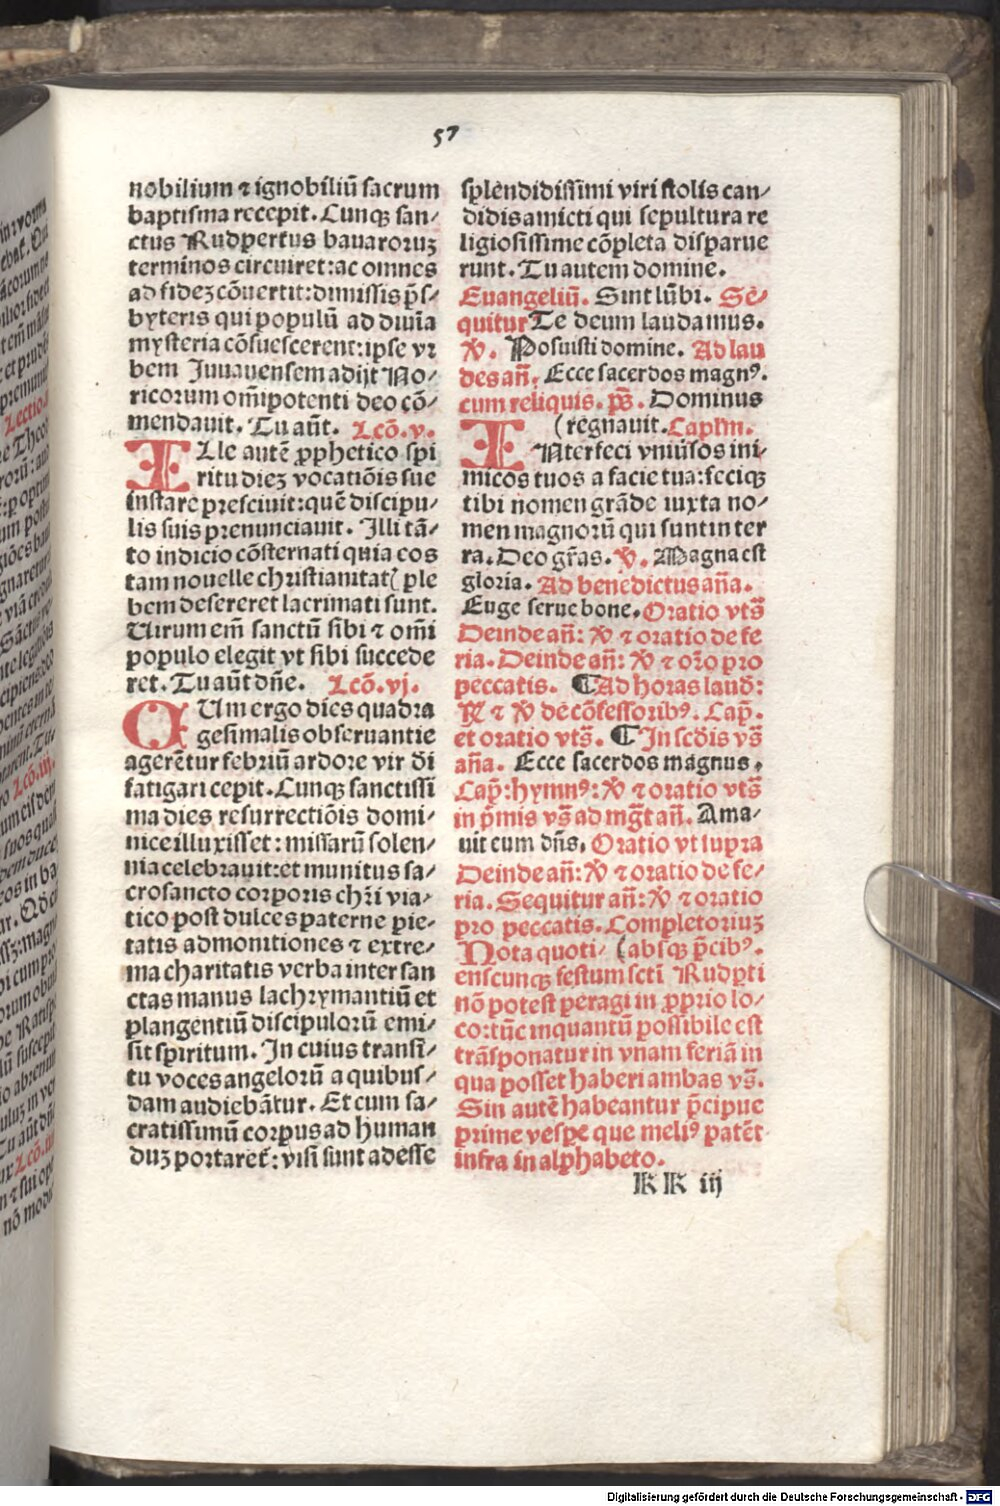 57
nobilium ⁊ ignobiliū sacrum
baptisma recepit. Cunqꝫ san-
ctus Rudpertus bauaroruꝫ
terminos circuiret: ac omnes
ad fideꝫ cōuertit: dimissis p̄s-
byteris qui populū ad diuīa
mysteria cōsuescerent: ipse vr
bem Juuauensem adijt No-
ricorum om̄ipotenti deo cō-
mendauit. Tu aūt. Lcō. v.
ILle autē ꝓphetico spi
ritu dieꝫ vocatiōis sue
instare presciuit: quē discipu-
lis suis prenunciauit. Illi tā-
to indicio cōsternati quia eos
tam nouelle christianitatꝭ ple
bem desereret lacrimati sunt.
Uirum em̄ sanctū sibi ⁊ om̄i
populo elegit vt sibi succede
ret. Tu aūt dn̄e. Lcō. vj.
CUm ergo dies quadra
gesimalis obseruantie
agerētur febriū ardore vir di
fatigari cepit. Cunqꝫ sanctissi
ma dies resurrectiōis domi-
nice illuxisset: missarū solen-
nia celebrauit: et munitus sa-
crosancto corporis chr̄i via-
tico post dulces paterne pie-
tatis admonitiones ⁊ extre-
ma charitatis verba inter san
ctas manus lachrymantiū et
plangentiū discipulorū emi-
sit spiritum. In cuius transi-
tu voces angelorū a quibus-
dam audiebātur. Et cum sa-
cratissimū corpus ad human
duꝫ portaret: visi sunt adesse
splendidissimi viri stolis can-
didis amicti qui sepultura re
ligiosissime cōpleta disparue
runt. Tu autem domine.
Euangeliū. Sint lūbi. Se-
quitur Te deum laudamus.
℣. Posuisti domine. Ad lau
des an̄. Ecce sacerdos magnꝰ.
cum reliquis. p̄s. Dominus
(regnauit. Caplm.
INterfeci vniūsos ini-
micos tuos a facie tua: feciqꝫ
tibi nomen grāde iuxta no-
men magnorū qui sunt in ter
ra. Deo gr̄as. ℣. Magna est
gloria. Ad benedictus an̄a.
Euge serue bone. Oratio vts̄
Deinde an̄: ℣ ⁊ oratio de fe
ria. Deinde an̄: ℣ ⁊ or̄o pro
peccatis. ¶ Ad horas laud:
℟ ⁊ ℣ de cōfessoribꝰ. Cap̄.
et oratio vts̄. ¶ In scd̄is vs̄
an̄a. Ecce sacerdos magnus.
Cap̄: hymnꝰ: ℣ ⁊ oratio vts̄
in p̄mis vs̄ ad mḡt an̄. Ama-
uit eum dn̄s. Oratio vt supra
Deinde an̄: ℣ ⁊ oratio de fe-
ria. Sequitur an̄: ℣ ⁊ oratio
pro peccatis. Completoriuꝫ
Nota quoti- (absqꝫ p̄cibꝰ.
enscunqꝫ festum scti Rudꝑti
nō potest peragi in ꝓprio lo-
co: tūc inquantū possibile est
trāsponatur in vnam feriā in
qua posset haberi ambas vs̄.
Sin autē habeantur p̄cipue
prime vespe que meliꝰ patēt
infra in alphabeto.
KK iij
Digitalisierung gefördert durch die Deutsche Forschungsgemeinschaft - DFG